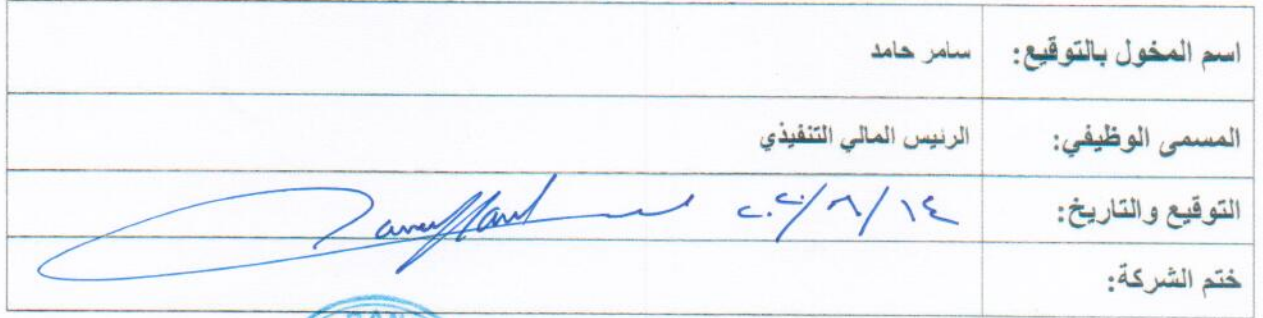 اسم المخول بالتوقيع: سامر حامد
المسمى الوظيفي: الرئيس المالي التنفيذي
التوقيع والتاريخ: ٢٠٢٠/٨/١٤
ختم الشركة: